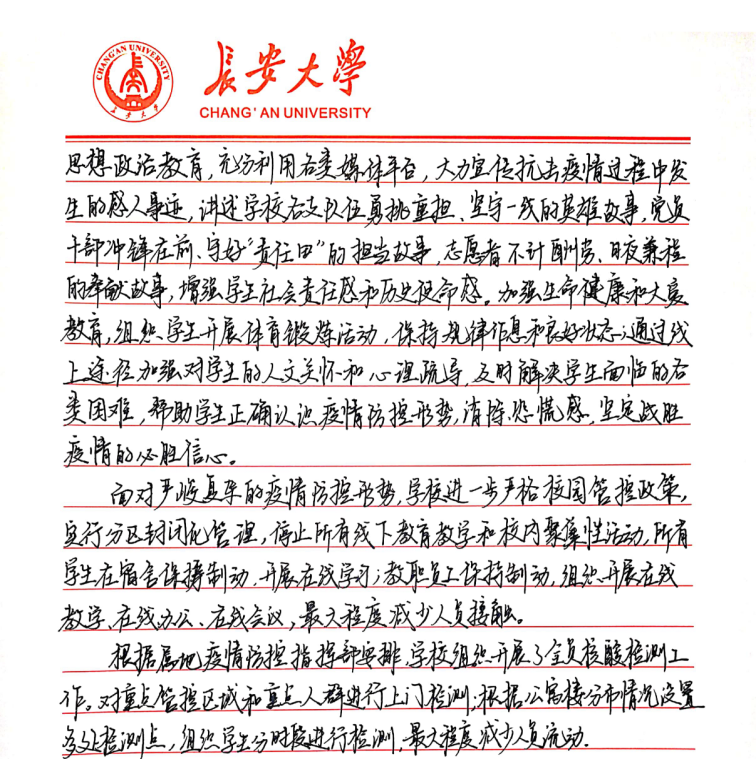 CHANG'AN UNIVERSITY
长安大学
長安大學
CHANG'AN UNIVERSITY
思想政治教育，充分利用各类媒体平台，大力宣传抗击疫情过程中发
生的感人事迹，讲述学校各支队伍勇挑重担、坚守一线的英雄故事，党员
干部冲锋在前、守好“责任田”的担当故事，志愿者不计酬劳、日夜兼程
的奉献故事，增强学生社会责任感和历史使命感。加强生命健康和大爱
教育，组织学生开展体育锻炼活动，保持规律作息和良好状态；通过线
上途径加强对学生的人文关怀和心理疏导，及时解决学生面临的各
类困难，帮助学生正确认识疫情防控形势，消除恐慌感，坚定战胜
疫情的必胜信心。
面对严峻复杂的疫情防控形势，学校进一步严格校园管控政策，
实行分区封闭化管理，停止所有线下教育教学和校内聚集性活动，所有
学生在宿舍保持制动，开展在线学习；教职员工保持制动，组织开展在线
教学、在线办公、在线会议，最大程度减少人员接触。
根据属地疫情防控指挥部安排，学校组织开展了全员核酸检测工
作。对重点管控区域和重点人群进行上门检测，根据公寓楼分布情况设置
多处检测点，组织学生分时段进行检测，最大程度减少人员流动.